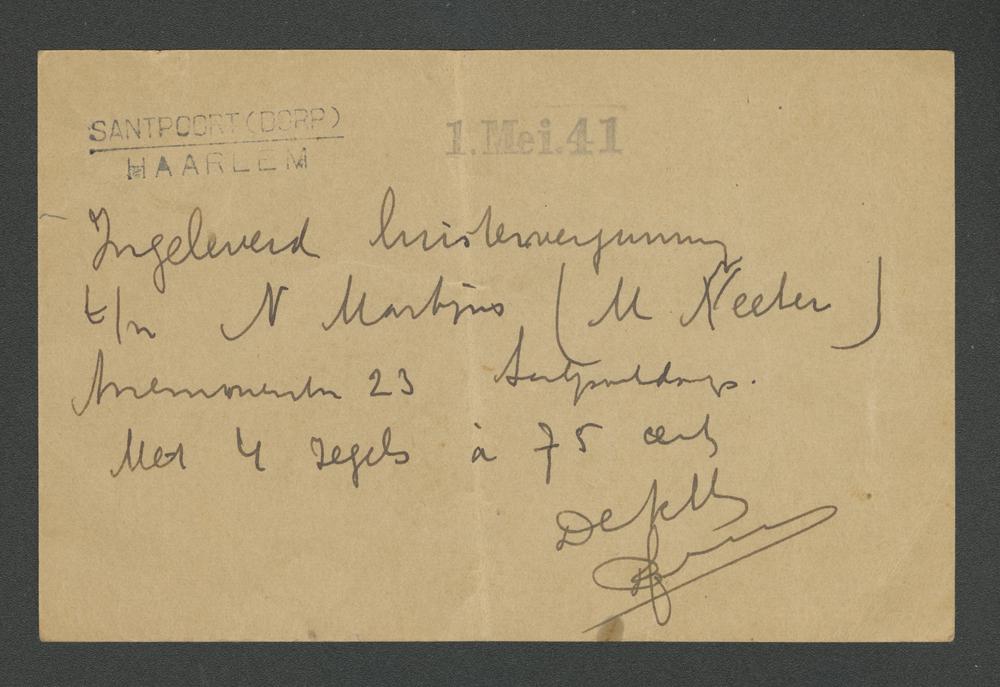 SANTPOORT (DORP)
HAARLEM
1. Mei. 41
Ingeleverd luistervergunning
t/n N Martijns (M Keeten)
23 Santpoortdorp.
Met 4 zegels à 75 cent